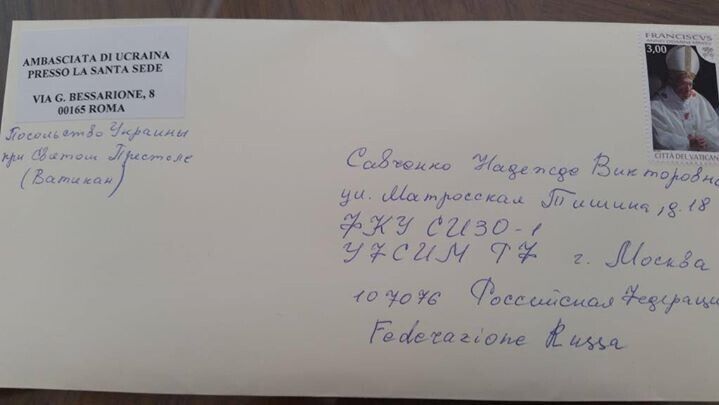 AMBASCIATA DI UCRAINA
PRESSO LA SANTA SEDE
VIA G. BESSARIONE, 8
00165 ROMA
Посольство Украины
при Святом Престоле
(Ватикан)
FRANCISCVS
3,00
CITTÀ DEL VATICANO
Савченко Надежде Викторовне
ул. Матросская Тишина, д. 18
ФКУ СИЗО-1
УФСИН РФ г. Москва
107076 Российская Федерация
Federazione Russa